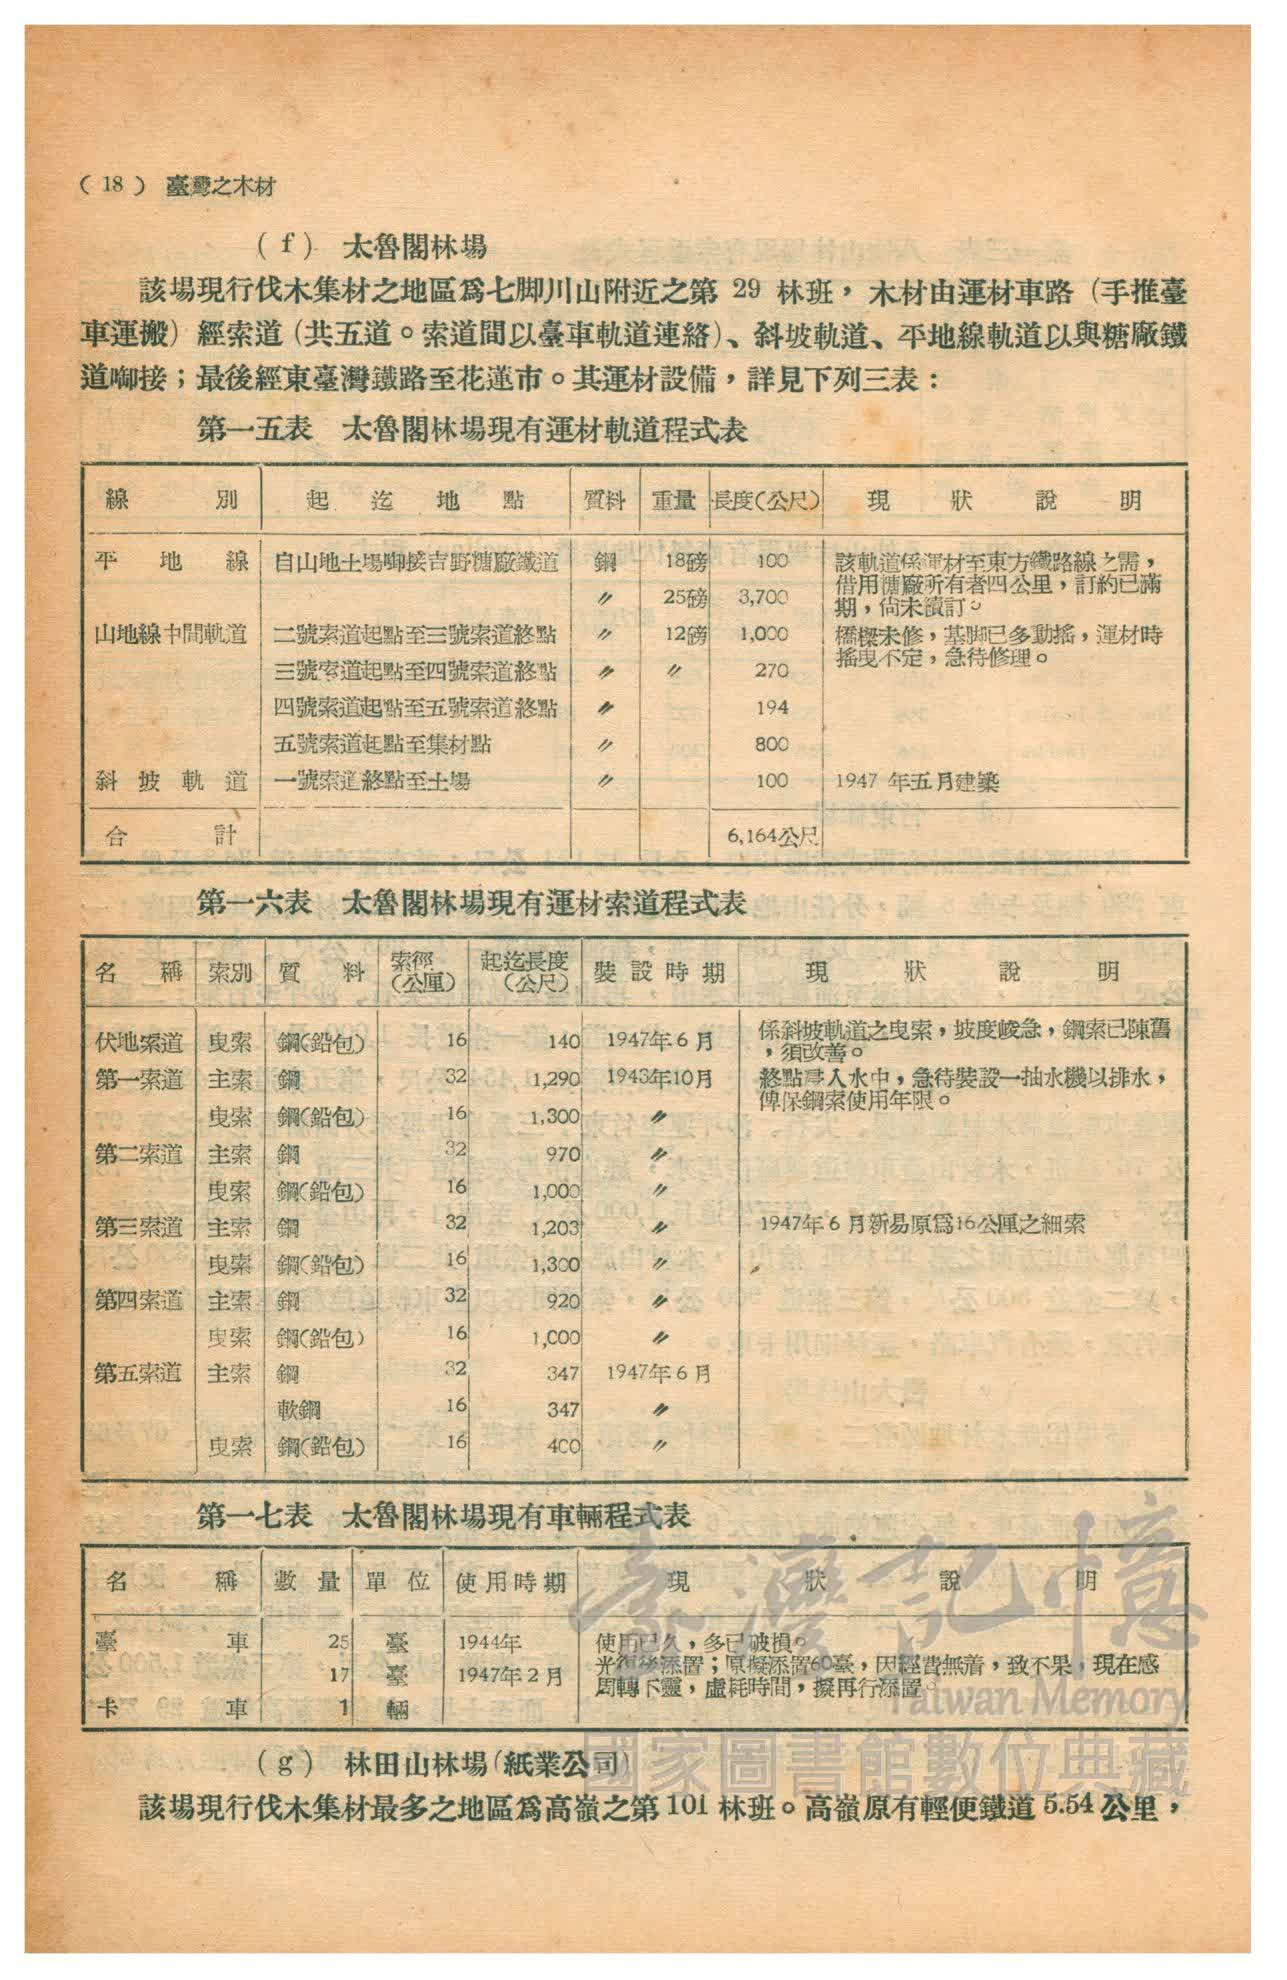 (18) 臺灣之木材
(f) 太魯閣林場
該場現行伐木集材之地區爲七脚川山附近之第 29 林班，木材由運材車路（手推臺
車運搬）經索道（共五道。索道間以臺車軌道連絡）、斜坡軌道、平地線軌道以與糖廠鐵
道啣接；最後經東臺灣鐵路至花蓮市。其運材設備，詳見下列三表：
第一五表 太魯閣林場現有運材軌道程式表
線別 起迄地點 質料 重量 長度(公尺) 現狀說明
平地線 自山地土場啣接吉野糖廠鐵道 鋼 18磅 100 該軌道係運材至東方鐵路線之需，
借用糖廠所有者四公里，訂約已滿
〃 25磅 3,700 期，尙未續訂。
山地線中間軌道 二號索道起點至三號索道終點 〃 12磅 1,000 橋樑未修，基脚已多動搖，運材時
搖曳不定，急待修理。
三號索道起點至四號索道終點 〃 〃 270
四號索道起點至五號索道終點 〃 194
五號索道起點至集材點 〃 800
斜坡軌道 一號索道終點至土場 〃 100 1947 年五月建築
合計 6,164公尺
第一六表 太魯閣林場現有運材索道程式表
名稱 索別 質料 索徑(公厘) 起迄長度(公尺) 裝設時期 現狀說明
伏地索道 曳索 鋼(鉛包) 16 140 1947年6月 係斜坡軌道之曳索，坡度峻急，鋼索已陳舊
，須改善。
第一索道 主索 鋼 32 1,290 1943年10月 終點浸入水中，急待裝設一抽水機以排水，
俾保鋼索使用年限。
曳索 鋼(鉛包) 16 1,300 〃
第二索道 主索 鋼 32 970 〃
曳索 鋼(鉛包) 16 1,000 〃
第三索道 主索 鋼 32 1,203 〃 1947年6月新易原爲16公厘之細索
曳索 鋼(鉛包) 16 1,300 〃
第四索道 主索 鋼 32 920 〃
曳索 鋼(鉛包) 16 1,000 〃
第五索道 主索 鋼 32 347 1947年6月
軟鋼 16 347 〃
曳索 鋼(鉛包) 16 400 〃
第一七表 太魯閣林場現有車輛程式表
名稱 數量 單位 使用時期 現狀說明
臺車 25 臺 1944年 使用已久，多已破損。
17 臺 1947年2月 光復後添置；原擬添置60臺，因經費無着，致不果，現在感
周轉不靈，虛耗時間，擬再行添置。
卡車 1 輛
(g) 林田山林場（紙業公司）
該場現行伐木集材最多之地區爲高嶺之第 101 林班。高嶺原有輕便鐵道 5.54 公里，
臺灣記憶
Taiwan Memory
國家圖書館數位典藏